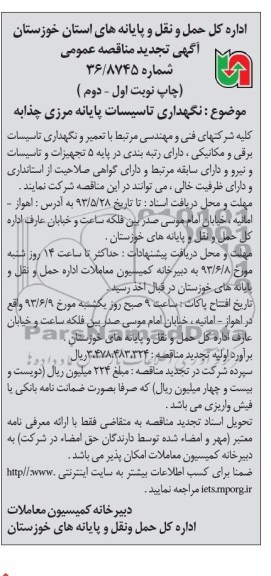 اداره کل حمل و نقل و پایانه های استان خوزستان
آگهی تجدید مناقصه عمومی
شماره ۳۶/۸۷۴۵
(چاپ نوبت اول - دوم )
موضوع : نگهداری تاسیسات پایانه مرزی چذابه
کلیه شرکتهای فنی و مهندسی مرتبط با تعمیر و نگهداری تاسیسات
برقی و مکانیکی ، دارای رتبه بندی در پایه ۵ تجهیزات و تاسیسات
و نیرو و دارای سابقه مرتبط و دارای گواهی صلاحیت از استانداری
و دارای ظرفیت خالی ، می توانند در این مناقصه شرکت نمایند .
مهلت و محل دریافت اسناد : تا تاریخ ۹۳/۵/۲۸ به آدرس : اهواز -
امانیه ، خیابان امام موسی صدر بین فلکه ساعت و خیابان عارف اداره
کل حمل و نقل و پایانه های خوزستان .
مهلت و محل دریافت پیشنهادات : حداکثر تا ساعت ۱۴ روز شنبه
مورخ ۹۳/۶/۸ به دبیرخانه کمیسیون معاملات اداره حمل و نقل و
پایانه های خوزستان در قبال اخذ رسید .
تاریخ افتتاح پاکات : ساعت ۹ صبح روز یکشنبه مورخ ۹۳/۶/۹ واقع
در اهواز - امانیه ، خیابان امام موسی صدر بین فلکه ساعت و خیابان
عارف اداره کل حمل و نقل و پایانه های خوزستان
برآورد اولیه تجدید مناقصه : ۳،۴۷۸،۴۸۳،۳۲۴ریال
سپرده شرکت در تجدید مناقصه : مبلغ ۲۲۴ میلیون ریال (دویست و
بیست و چهار میلیون ریال) که صرفا بصورت ضمانت نامه بانکی یا
فیش واریزی می باشد .
تحویل اسناد تجدید مناقصه به متقاضی فقط با ارائه معرفی نامه
معتبر (مهر و امضاء شده توسط دارندگان حق امضاء در شرکت) به
دبیرخانه کمیسیون معاملات امکان پذیر می باشد .
ضمنا برای کسب اطلاعات بیشتر به سایت اینترنتی http//:www.
iets.mporg.ir مراجعه نمایید .
دبیرخانه کمیسیون معاملات
اداره کل حمل ونقل و پایانه های خوزستان